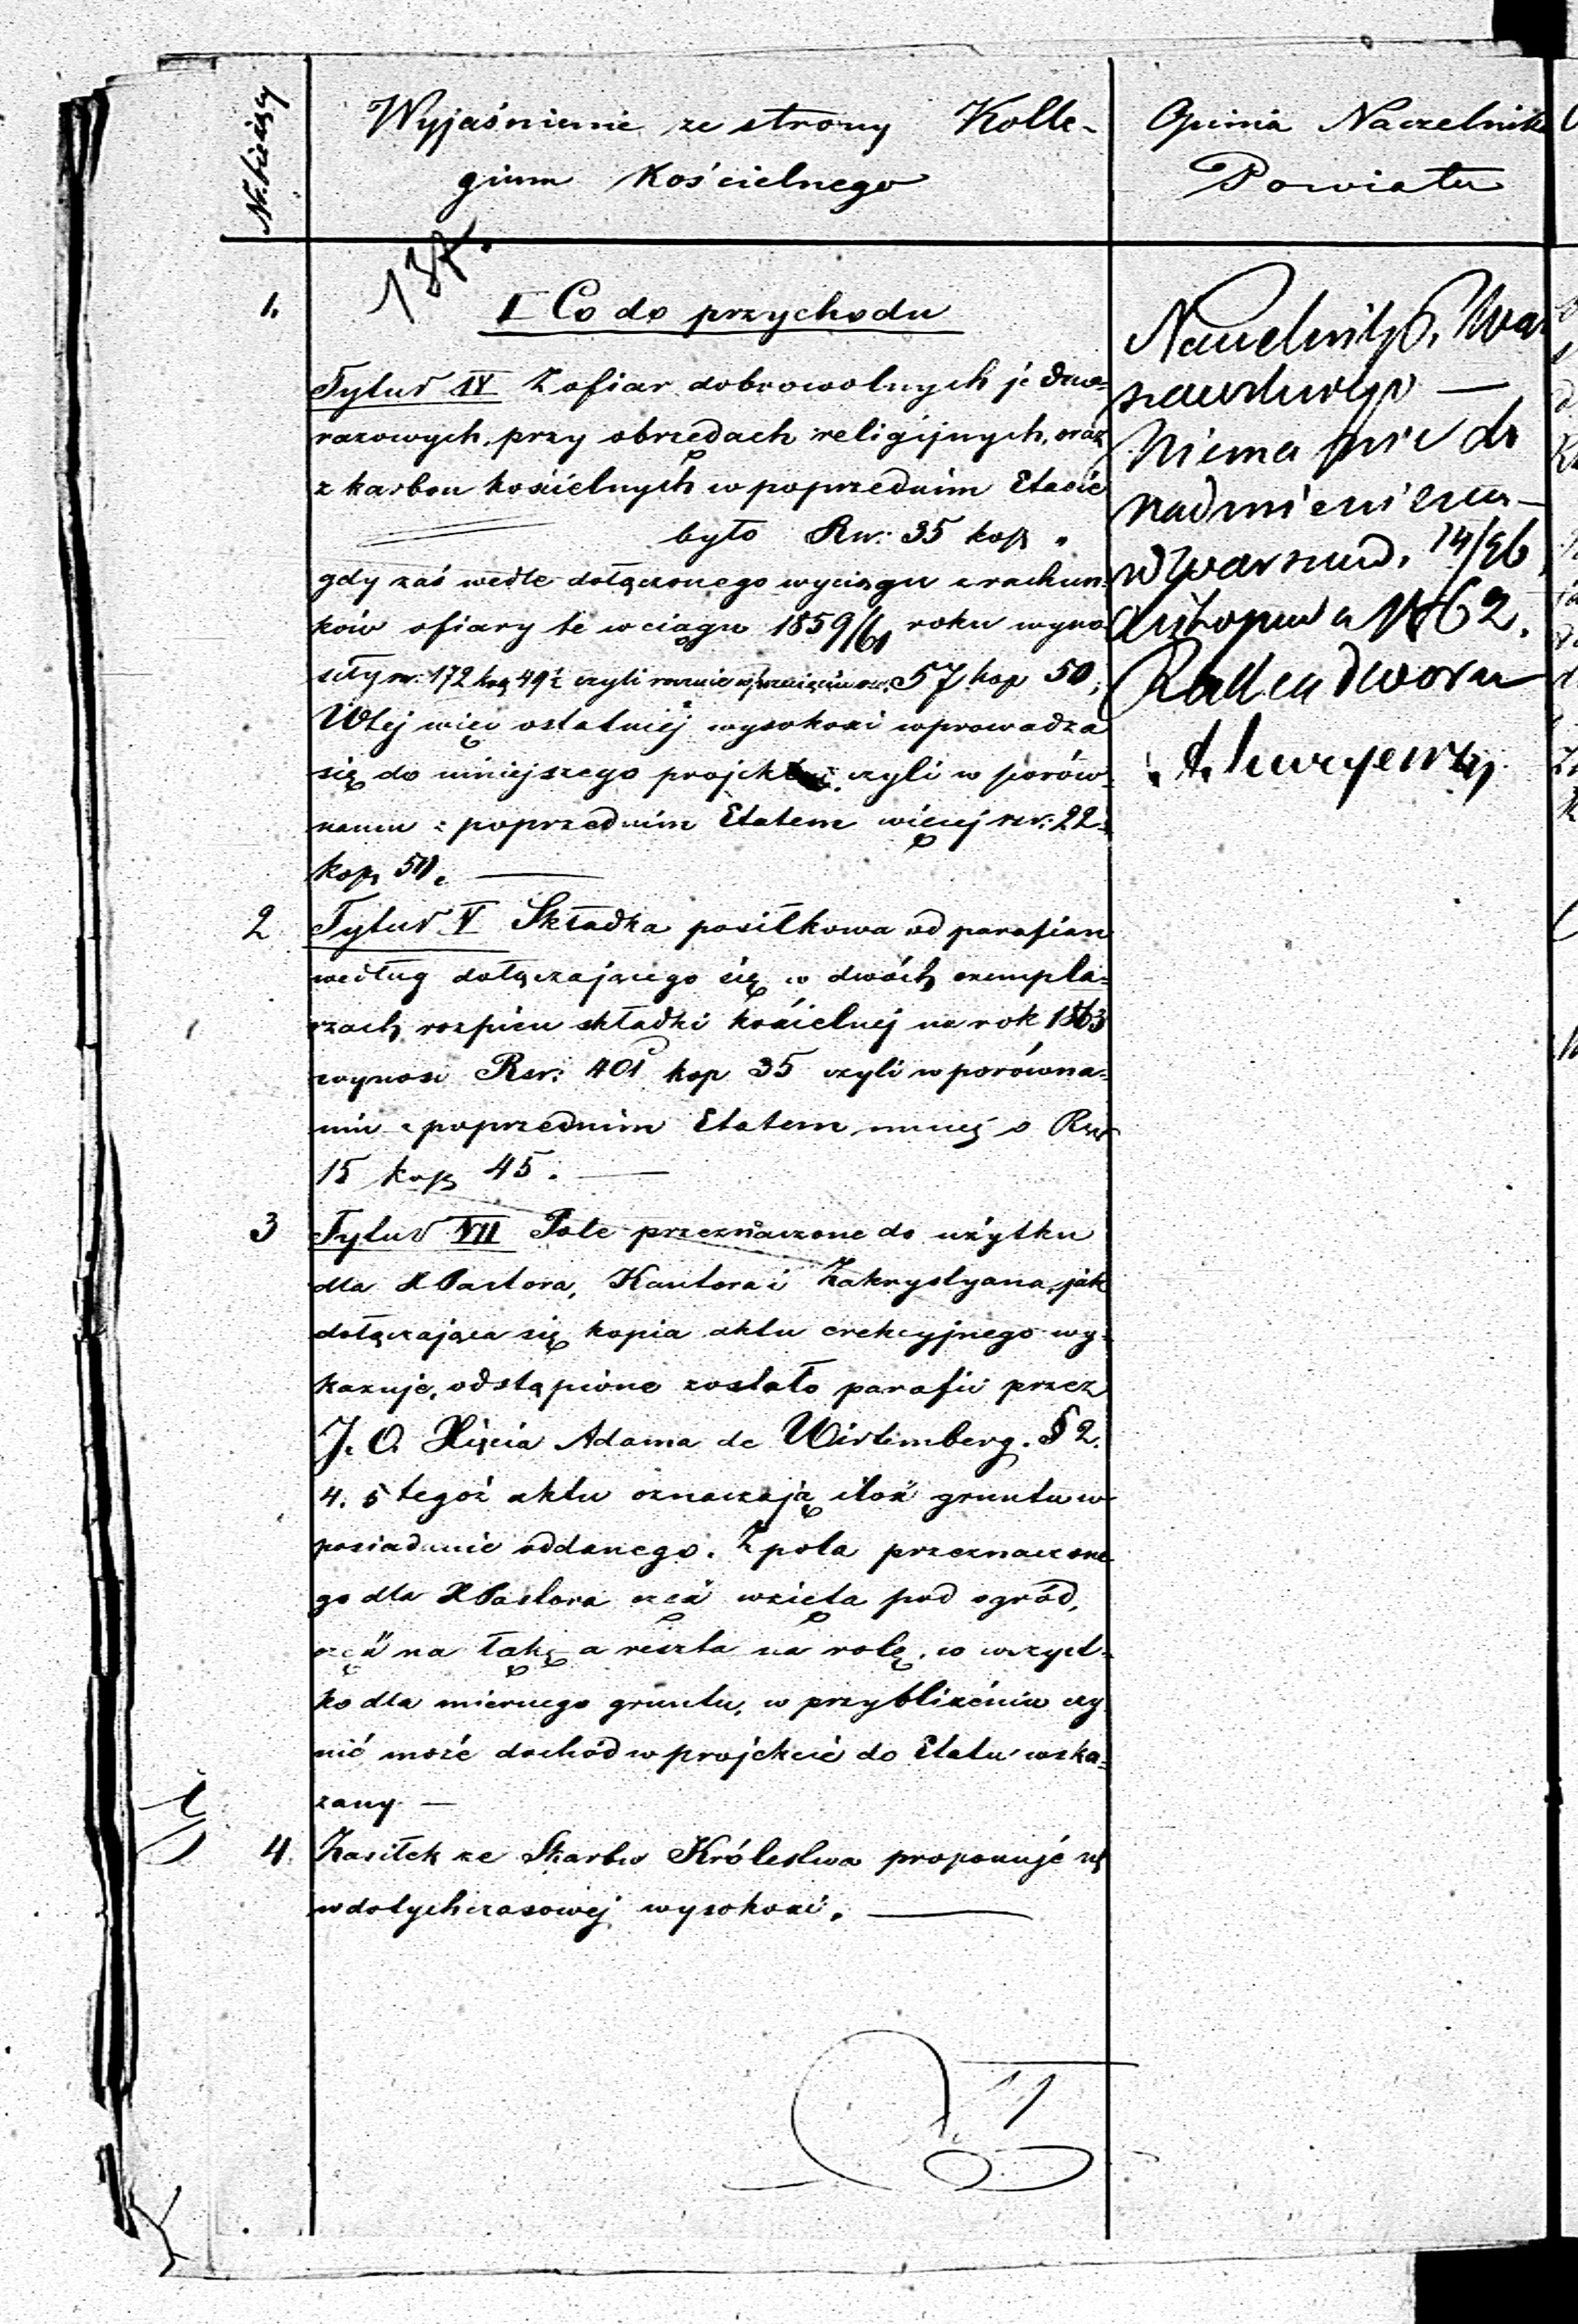 Nr. bieżący
Wyjaśnienie ze strony Kolle-
gium Kościelnego
Opinia Naczelnika
Powiatu
1.
I Co do przychodu
Tytuł IV Z ofiar dobrowolnych jedno-
razowych, przy obrzędach religijnych, oraz
z karbon kościelnych w poprzednim Etacie
było Rsr: 35 kop "
gdy zaś wedle dołączonego wyciągu z rachun-
ków ofiary te w ciągu 1859/61 roku wyno
siły rsr: 172 kop 49½ czyli rocznie w przecięciu rsr. 57 kop 50,
W tej więc ostatniej wysokości wprowadza
się do niniejszego projektu czyli w porów-
naniu z poprzednim Etatem więcej rsr: 22
kop 50.
2
Tytuł V Składka posiłkowa od parafian
według dołączającego się w dwóch exempla-
rzach rozpisu składki kościelnej na rok 1863
wynosi Rsr: 401 kop 35 czyli w porówna-
niu z poprzednim Etatem mniej o Rsr
15 kop 45.
3
Tytuł VII Pole przeznaczone do użytku
dla X Pastora, Kantora i Zakrystyana, jak
dołączająca się kopia aktu erekcyjnego wy-
kazuje, odstąpione zostało parafii przez
J. O. Xięcia Adama de Wirtemberg. § 2.
4. 5 tegoż aktu oznaczają ilość gruntu w
posiadanie oddanego. Z pola przeznaczone
go dla X Pastora część wzięta pod ogród,
część na łąkę a reszta na rolę. co wszyst-
ko dla miernego gruntu, w przybliżeniu czy
nić może dochód w projekcie do Etatu wska-
zany —
4.
Zasiłek ze Skarbu Królestwa proponuje się
w dotychczasowej wysokości.
Naczelnik P. War
szawskiego —
Niema nic do
nadmienienia —
w Warszaw. 14/26
Listopada 1862.
Radca Dworu